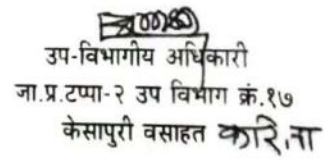 उप-विभागीय अधिकारी
जा.प्र.टप्पा-२ उप विभाग क्रं.१७
केसापुरी वसाहत